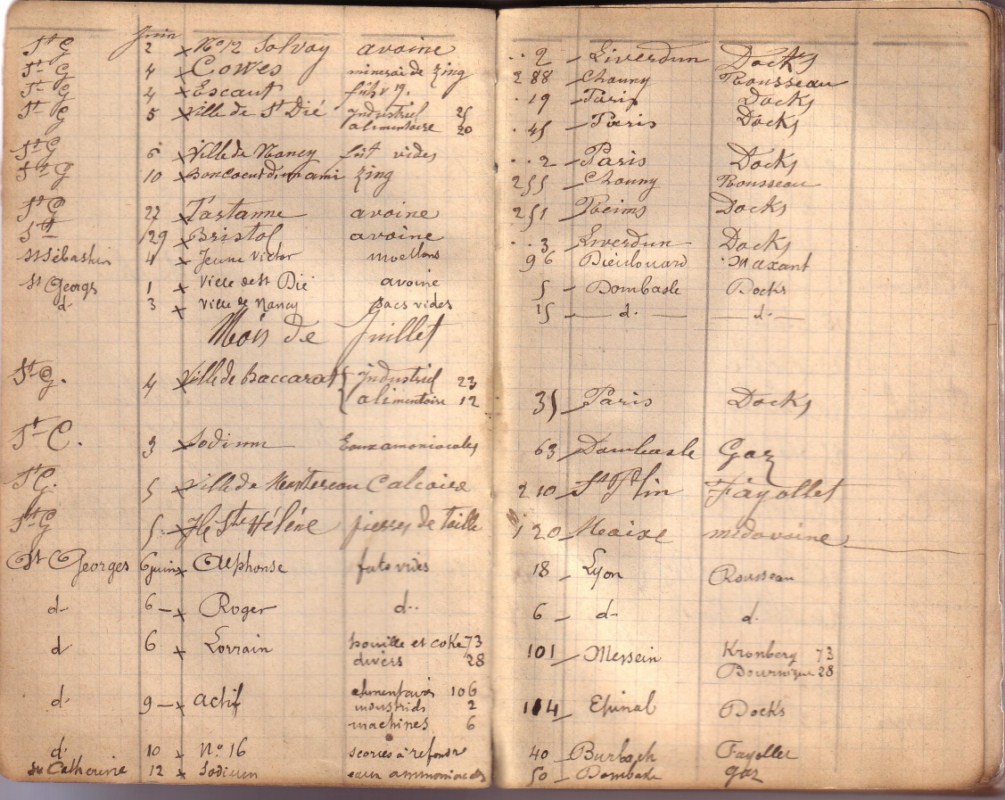 Juin
St G 2 x No 12 Solvay avoine .. 2 - Liverdun Docks
St G 4 x Cowes minerai de zing 288 - Chauny Rousseau
St G 4 x Escaut fût v. 19 - Paris Docks
St G 5 x Ville de St Dié industriel 25 . 45 - Paris Docks
alimentaire 20
St G 6 x Ville de Nancy fût vides .. 2 - Paris Docks
St G 10 x Boncoeurdunami zing 255 - Chauny Rousseau
St G 27 x Tartanne avoine 251 - Reims Docks
St 129 x Bristol avoine .. 3 - Liverdun Docks
St Sébastien 4 x Jeune Victor moellons 96 Dieulouard Maxant
St Georgs 1 x Ville de St Dié avoine 5 - Dombasle Docks
d. 3 x Ville de Nancy sacs vides 15 - d. - d. -
Mois de Juillet
St G. 4 x Ville de Baccarat { industriel 23
alimentaire 12 35 - Paris Docks
St C. 3 x Sodium Eaux amoniacales 63 - Dombasle Gaz
St G. 5 x Ville de Montereau Calcaire 210 - St Phlin Fayollet
St G 5 x Ile Ste Hélène pierres de taille 120 - Maixe
St Georges 6 juin x Alphonse futs vides 18 - Lyon Rousseau
d. 6 - x Roger d.. 6 - d. d.
d 6 x Lorrain houille et coke 73 101 - Messein Kronberg 73
divers 28 Bournique 28
d. 9 - x Actif alimentaires 106 114 - Epinal Docks
industriels 2
machines 6
d. 10 x No 16 scories à refondre 40 - Burbach Fayollet
Ste Catherine 12 x Sodium eaux ammoniacales 50 - Dombasle Gaz